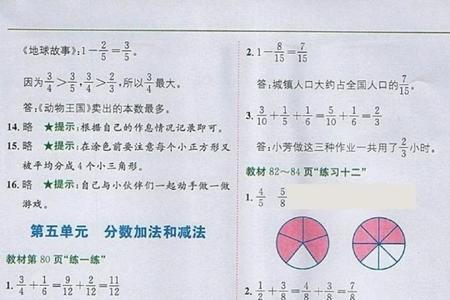 《地球故事》:1－2/5＝3/5。
因为3/4＞3/5,3/4＞2/3,所以3/4最大。
答:《动物王国》卖出的本数最多。
14. 略 ★提示:根据自己的作息情况记录即可。
15. 略 ★提示:在涂色前要注意每个小正方形又
被平均分成4个小三角形。
16. 略 ★提示:自己与小伙伴们一起动手做一做
游戏。
第五单元 分数加法和减法
教材第80页“练一练”
1. 3/4＋1/6＝9/12＋2/12＝11/12
2. 1－8/15＝7/15
答:城镇人口大约占全国人口的7/15。
3. 3/10＋1/6＋1/5＝5/10＋1/6＝2/3
答:小芳做这三种作业一共用了2/3小时。
教材82～84页“练习十二”
1. 4/5 5/8
2. 1/2＋3/8＝4/8＋3/8＝7/8